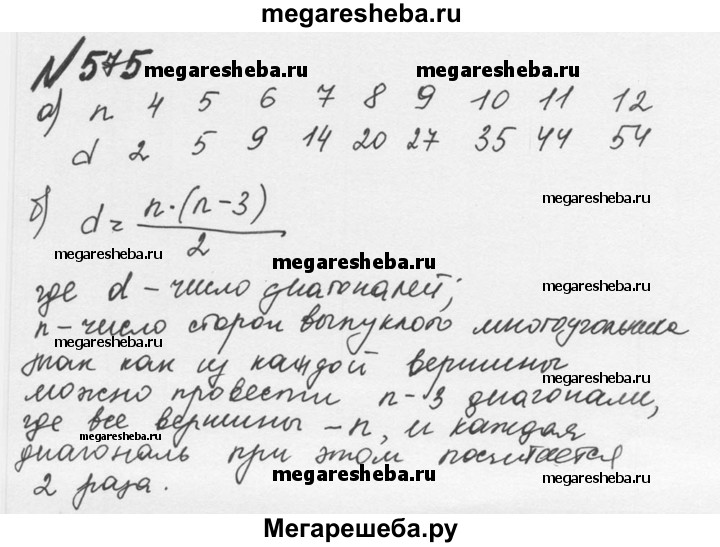 megaresheba.ru
№ 575 megaresheba.ru megaresheba.ru
а) n 4 5 6 7 8 9 10 11 12
d 2 5 9 14 20 27 35 44 54
megaresheba.ru
б) d = n·(n-3)/2
megaresheba.ru megaresheba.ru megaresheba.ru
где d - число диагоналей;
n - число сторон выпуклого многоугольника
так как из каждой вершины
megaresheba.ru
можно провести n-3 диагонали,
где все вершины - n, и каждая
megaresheba.ru megaresheba.ru
диагональ при этом посчитается
megaresheba.ru megaresheba.ru
2 раза.
Мегарешеба.ру